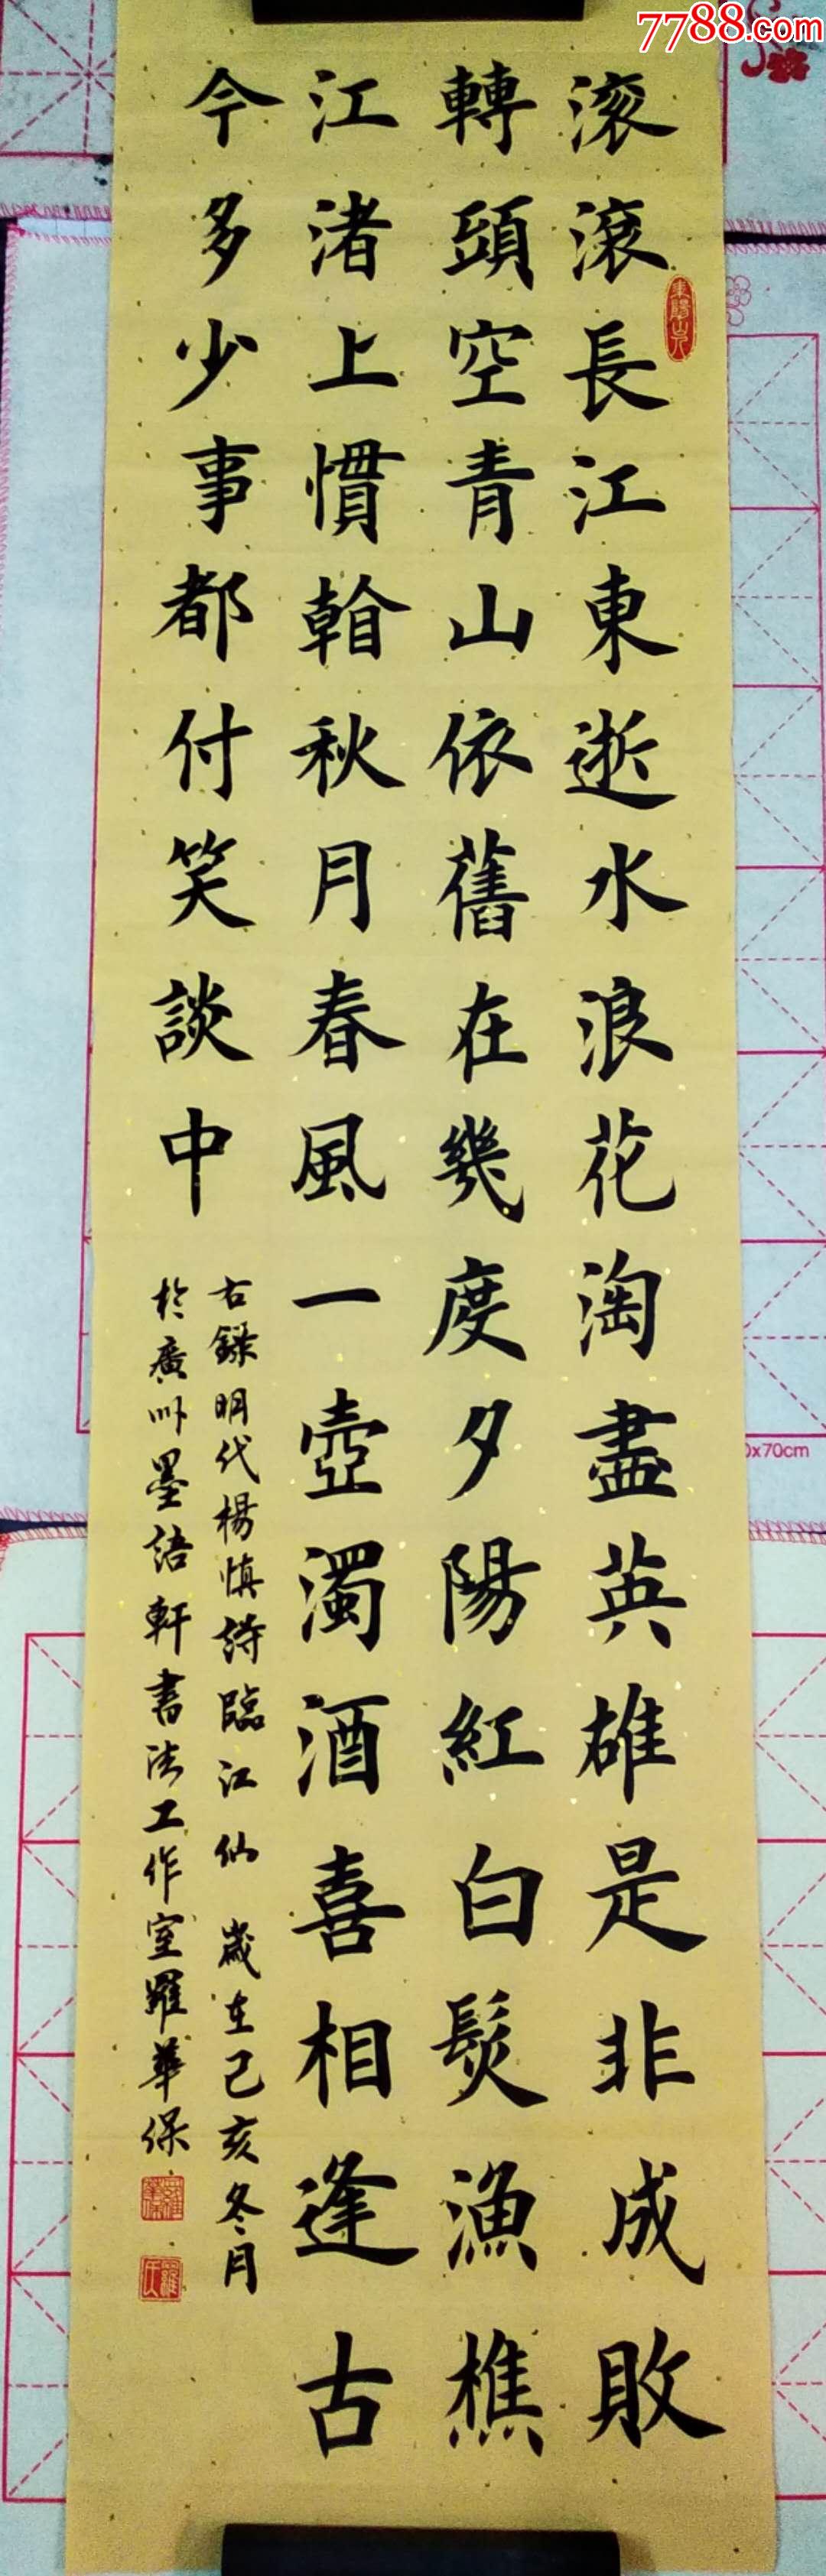 滚滾長江東逝水浪花淘盡英雄是非成敗
轉頭空青山依舊在幾度夕陽紅白髮漁樵
江渚上慣看秋月春風一壺濁酒喜相逢古
今多少事都付笑談中
右錄明代楊慎詩臨江仙 歲在己亥冬月
於廣州墨語軒書法工作室羅華保
7788.com
0x70cm